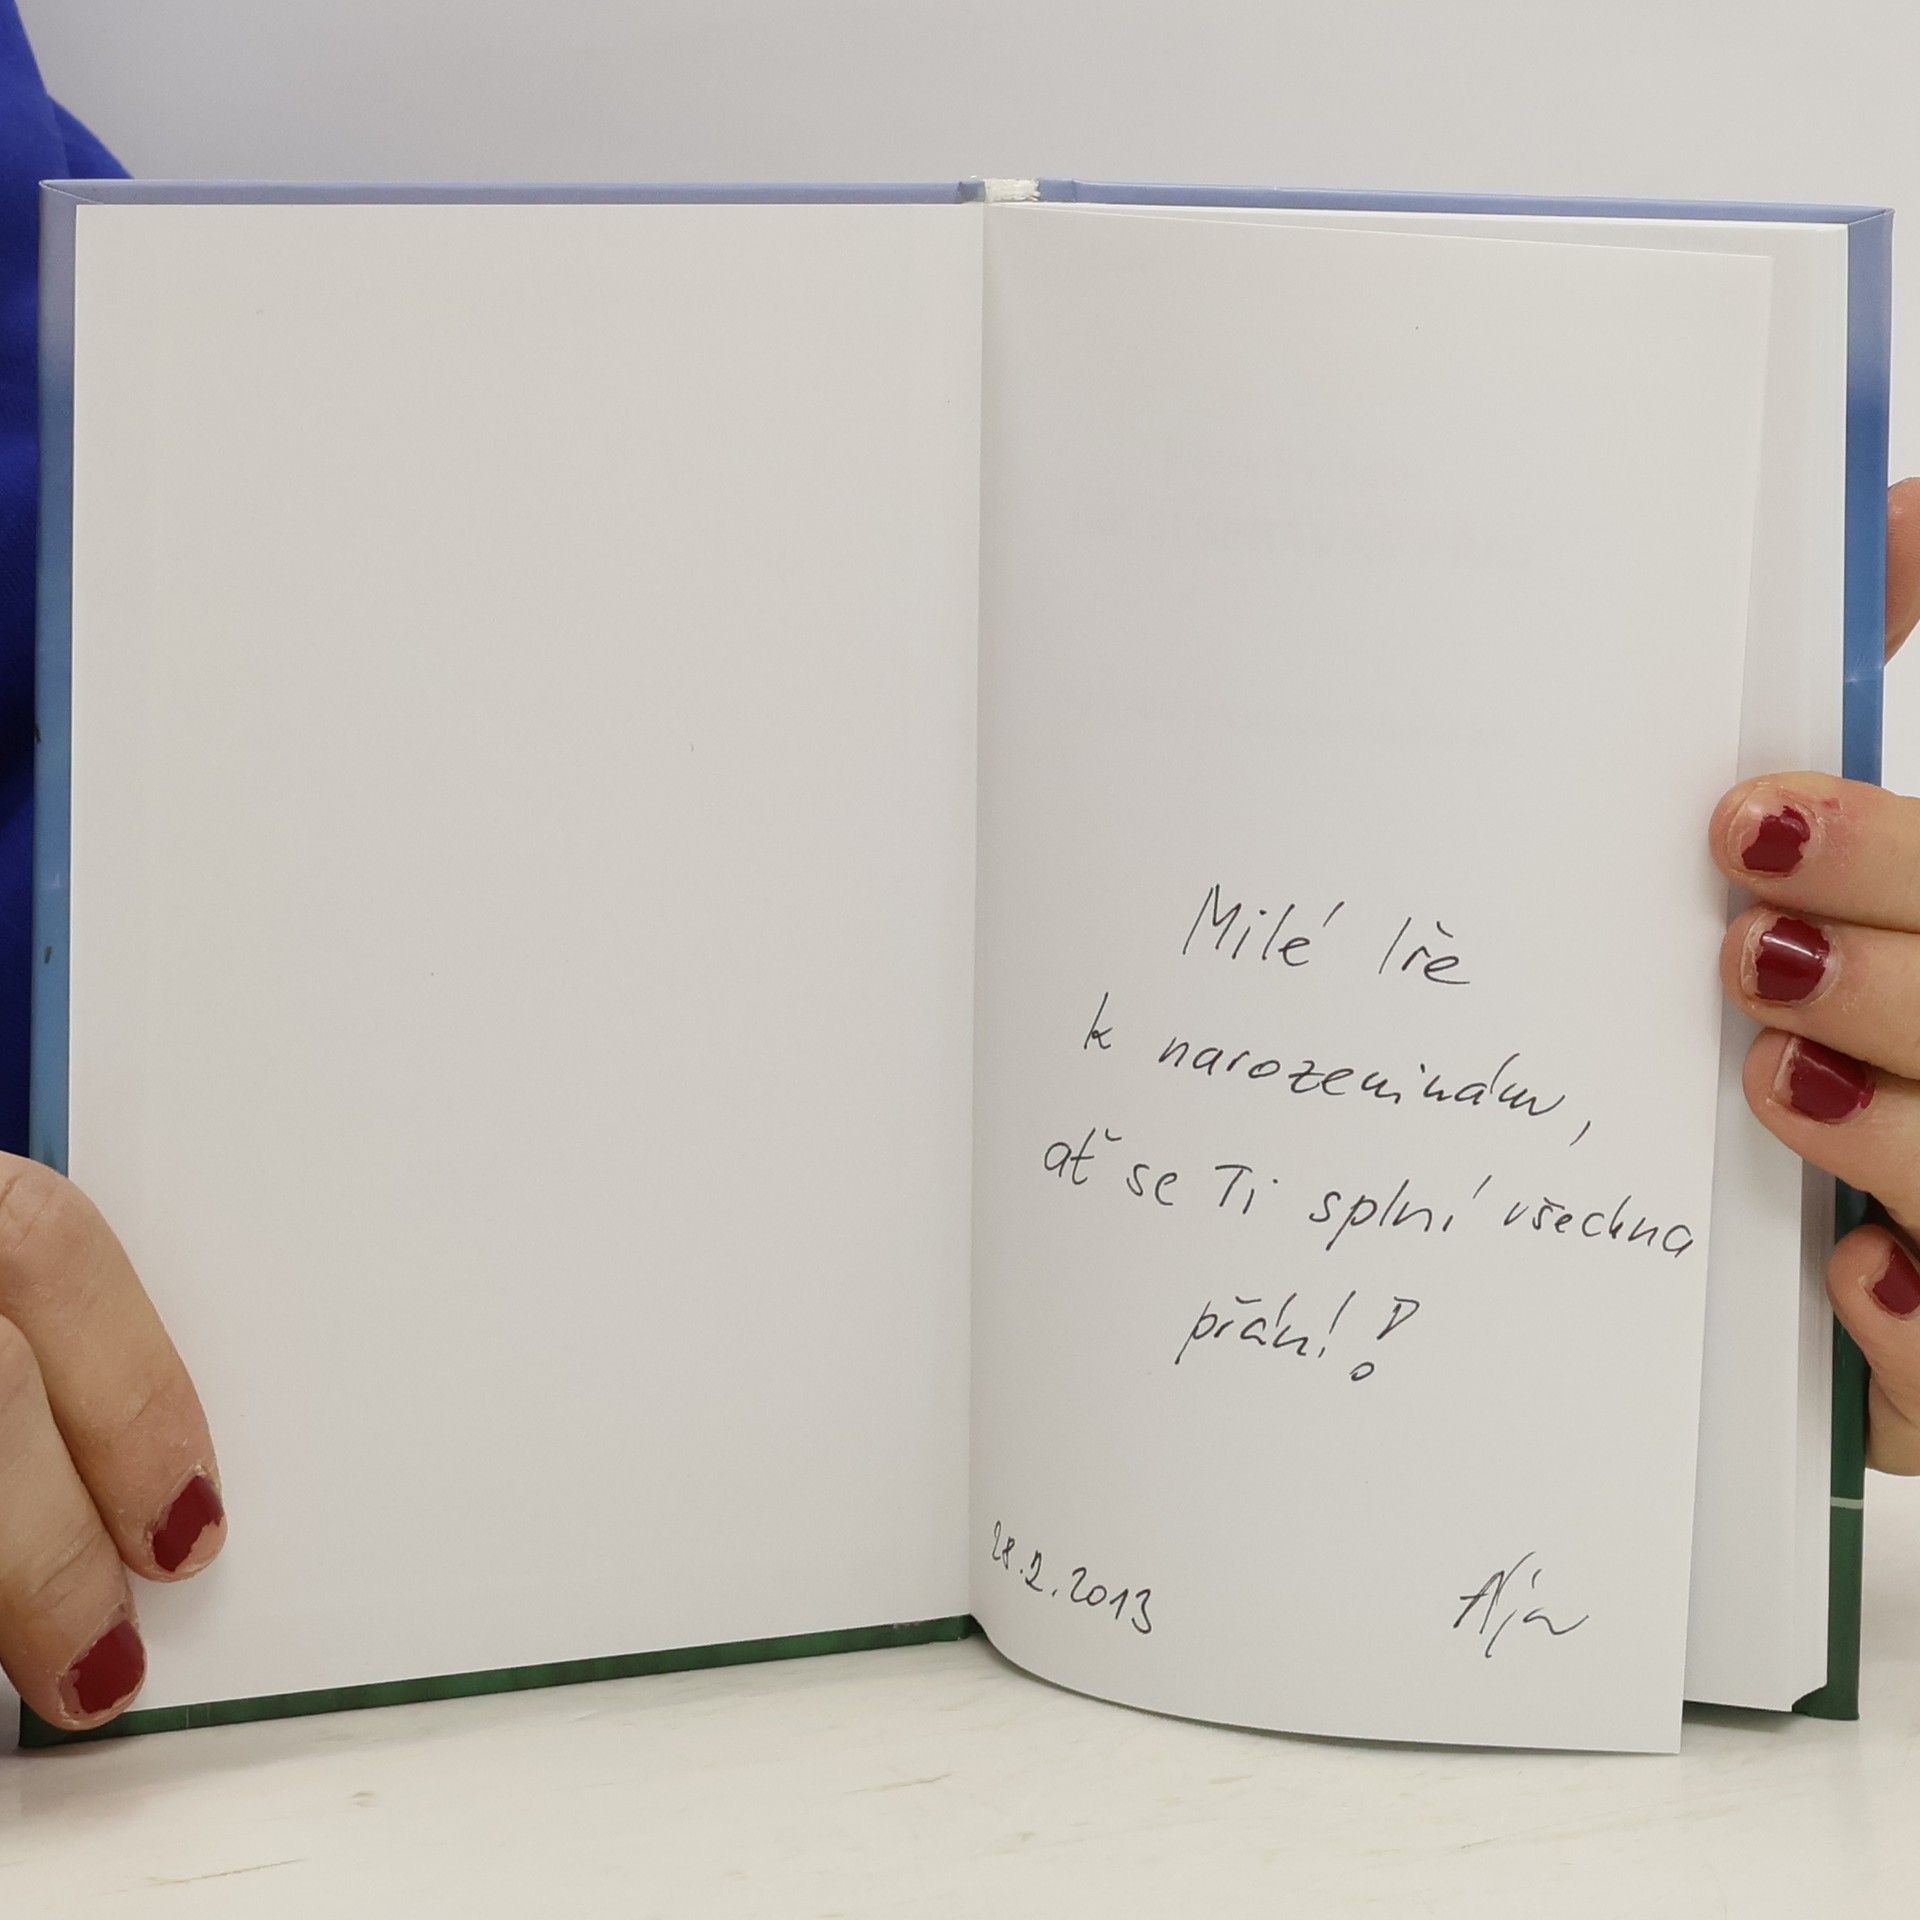 Milé Iře
k narozeninám,
ať se Ti splní všechna
přání!
28.2.2013